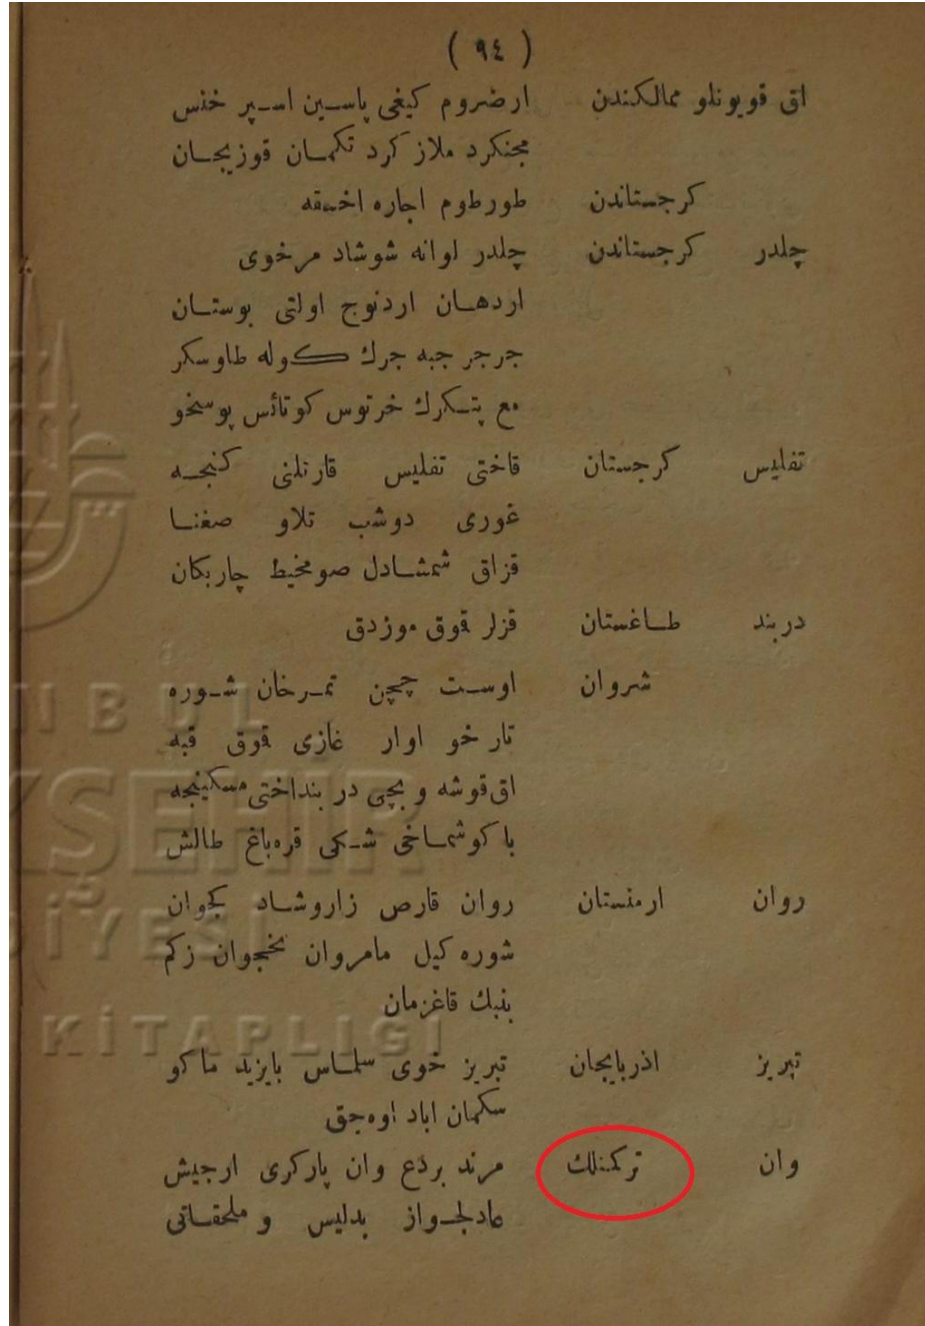 ( ٩٤ )
اق قویونلو ممالکندن ارضروم کیغی پاسین اسپر خنس
مجنکرد ملاز کرد تکمان قوزیجان
کرجستاندن طورطوم اجاره اخسقه
چلدر کرجستاندن چلدر لوانه شوشاد مرخوی
اردهان اردنوج اولتی بوستان
جرجر جبه جرك کوله طاوسکر
مع پتکرك خرتوس کوتائس پوسخو
تفلیس کرجستان قاختی تفلیس قارتلنی کنجه
غوری دوشب تلاو صغنا
قزاق شمشادل صومخیط چاربکان
دربند طاغستان قزلر قوق موزدق
شروان اوست چچن تمرخان شوره
تارخو اوار غازی قوق قبه
اق قوشه و بچی دربنداختی مسکینجه
باکوشماخی شکی قره باغ طالش
روان ارمنستان روان قارص زاروشاد کجوان
شوره کیل مامروان نخجوان زکم
بنبك قاغزمان
تبریز اذربایجان تبریز خوی سلماس بایزید ماکو
سکمان اباد اوه جق
وان ترکمنلك مرند بردع وان پارکری ارجیش
عادلجواز بدلیس و ملحقاتی
İSTANBUL
BÜYÜKŞEHİR
BELEDİYESİ
KİTAPLIĞI